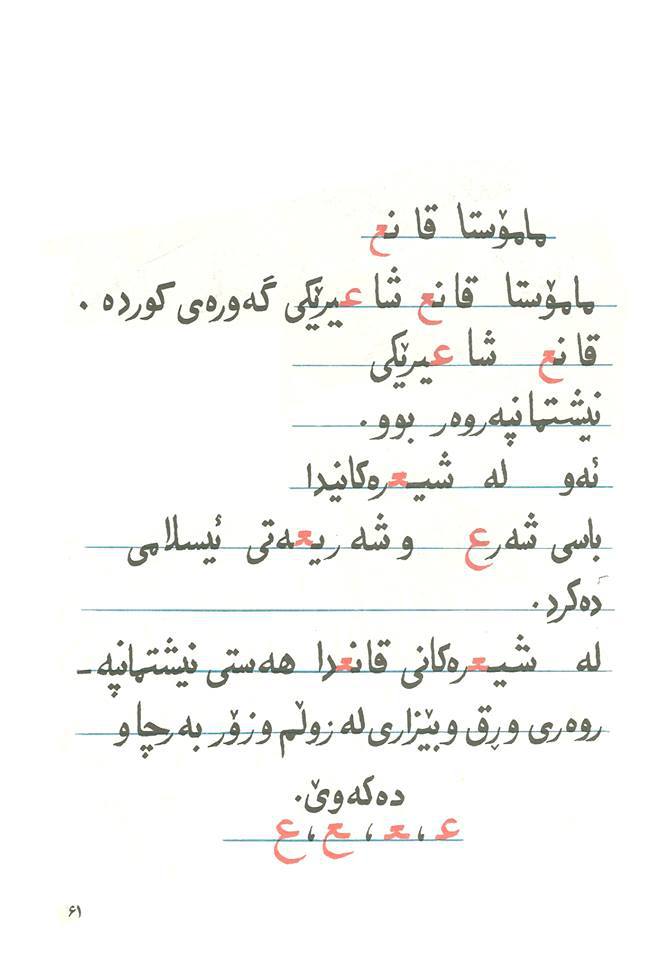 مامۆستا قانع
مامۆستا قانع شاعیرێکی گەورەی کوردە .
قانع شاعیرێکی
نیشتمانپەروەر بوو.
ئەو لە شیعرەکانیدا
باسی شەرع وشەریعەتی ئیسلامی
دەکرد.
لە شیعرەکانی قانعدا هەستی نیشتمانپە-
روەری ورق وبێزاری لە زوڵم وزۆر بەرچاو
دەکەوێ.
عـ ، ـعـ ، ـع ، ع
۶۱